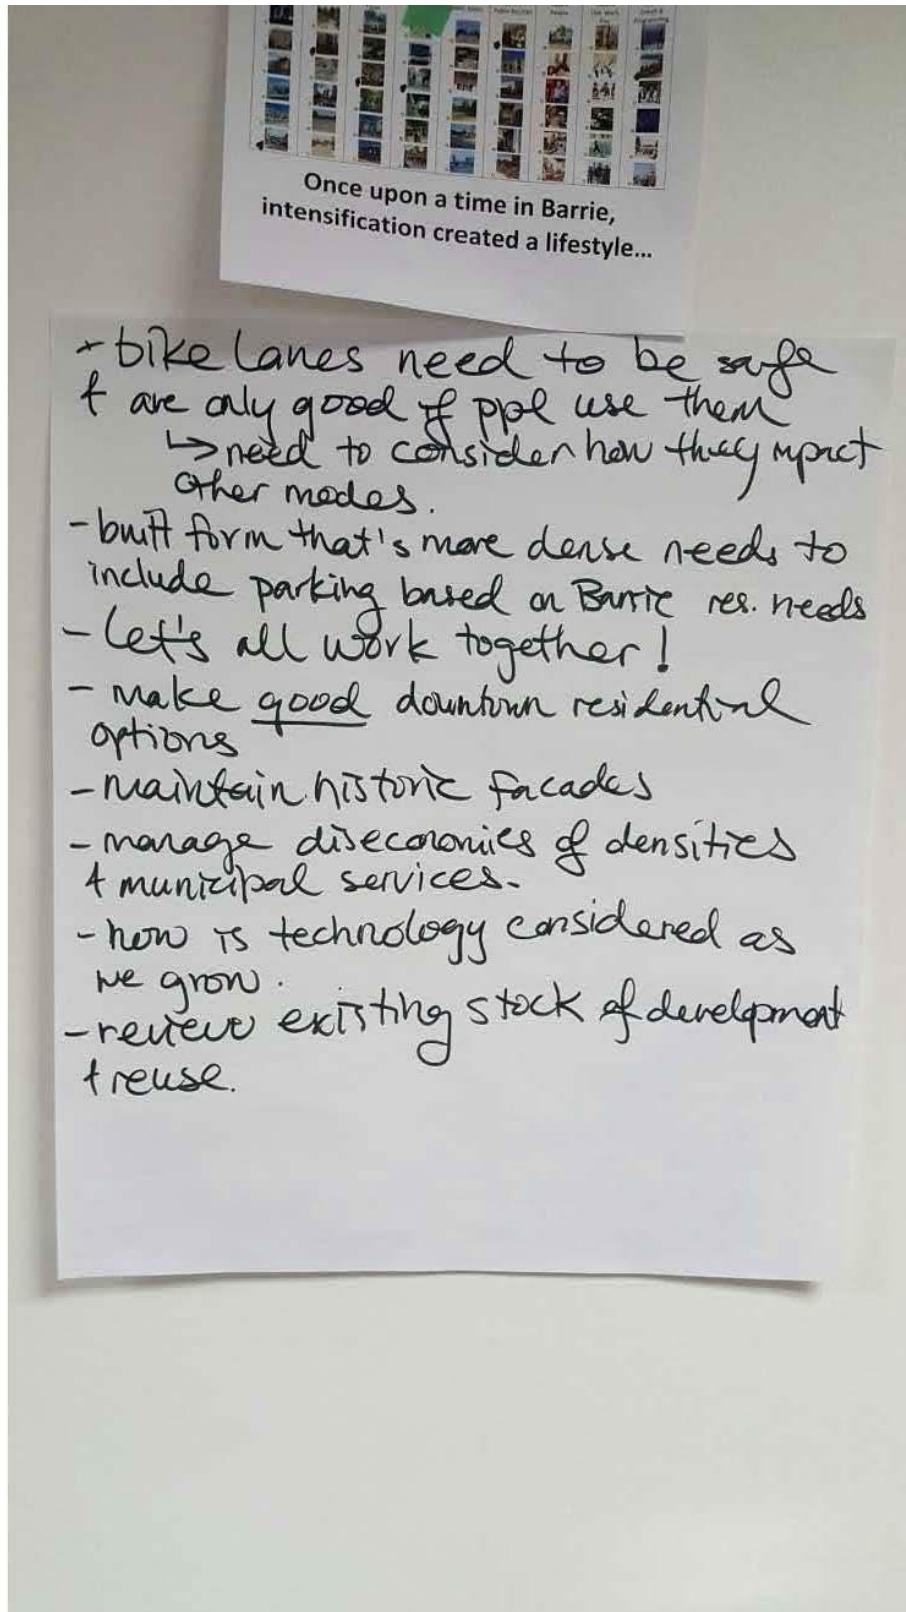 Once upon a time in Barrie,
intensification created a lifestyle...
- bike lanes need to be safe
+ are only good if ppl use them
↳ need to consider how they impact
other modes.
- built form that's more dense needs to
include parking based on Barrie res. needs
- Let's all work together!
- make good downtown residential
options
- maintain historic facades
- manage diseconomies of densities
+ municipal services.
- how is technology considered as
we grow.
- review existing stock of development
+ reuse.